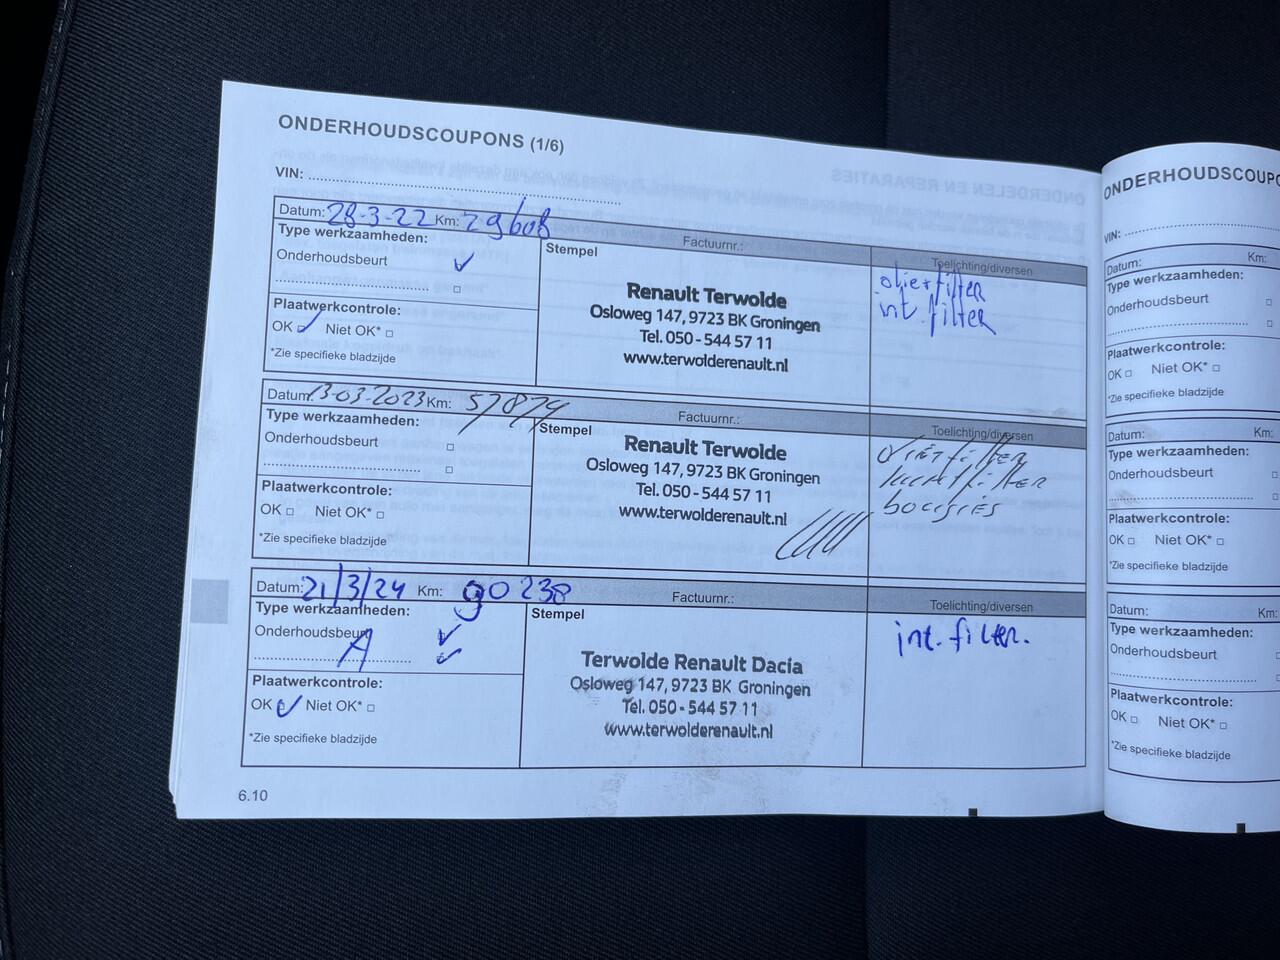 ONDERHOUDSCOUPONS (1/6)
VIN:
Datum: 28-3-22 Km: 29608 Factuurnr.: Toelichting/diversen
Type werkzaamheden:
Onderhoudsbeurt ✓
Plaatwerkcontrole:
OK ✓ Niet OK* □
*Zie specifieke bladzijde
Stempel
Renault Terwolde
Osloweg 147, 9723 BK Groningen
Tel. 050 - 544 57 11
www.terwolderenault.nl
olie+filter
int. filter
Datum: 13-03-2023 Km: 57874 Factuurnr.: Toelichting/diversen
Type werkzaamheden:
Onderhoudsbeurt □
Plaatwerkcontrole:
OK □ Niet OK* □
*Zie specifieke bladzijde
Stempel
Renault Terwolde
Osloweg 147, 9723 BK Groningen
Tel. 050 - 544 57 11
www.terwolderenault.nl
luchtfilter
bougies
Datum: 21/3/24 Km: 90 238 Factuurnr.: Toelichting/diversen
Type werkzaamheden:
Onderhoudsbeurt ✓
A ✓
Plaatwerkcontrole:
OK ✓ Niet OK* □
*Zie specifieke bladzijde
Stempel
Terwolde Renault Dacia
Osloweg 147, 9723 BK Groningen
Tel. 050 - 544 57 11
www.terwolderenault.nl
int. filter.
6.10
ONDERHOUDSCOUPO
VIN:
Datum: Km:
Type werkzaamheden:
Onderhoudsbeurt □
Plaatwerkcontrole:
OK □ Niet OK* □
*Zie specifieke bladzijde
Datum: Km:
Type werkzaamheden:
Onderhoudsbeurt □
Plaatwerkcontrole:
OK □ Niet OK* □
*Zie specifieke bladzijde
Datum: Km:
Type werkzaamheden:
Onderhoudsbeurt □
Plaatwerkcontrole:
OK □ Niet OK* □
*Zie specifieke bladzijde